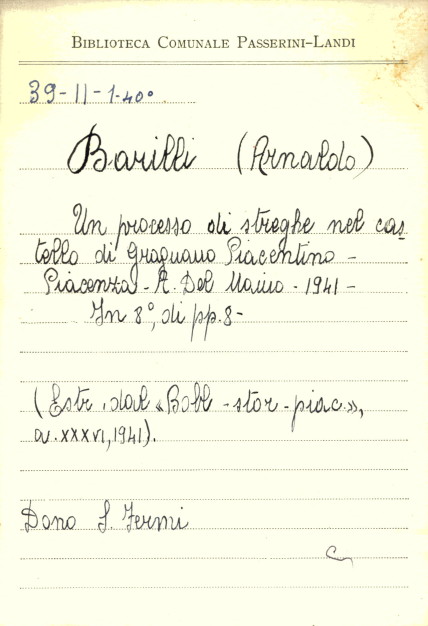 BIBLIOTECA COMUNALE PASSERINI-LANDI
39-II-1-40°
Barilli (Arnaldo)
Un processo di streghe nel cas-
tello di Gragnano Piacentino -
Piacenza - A. Del Maino - 1941 -
In 8°, di pp. 8 -
(Estr. dal «Boll - stor - piac.»,
a. XXXVI, 1941).
Dono S. Fermi